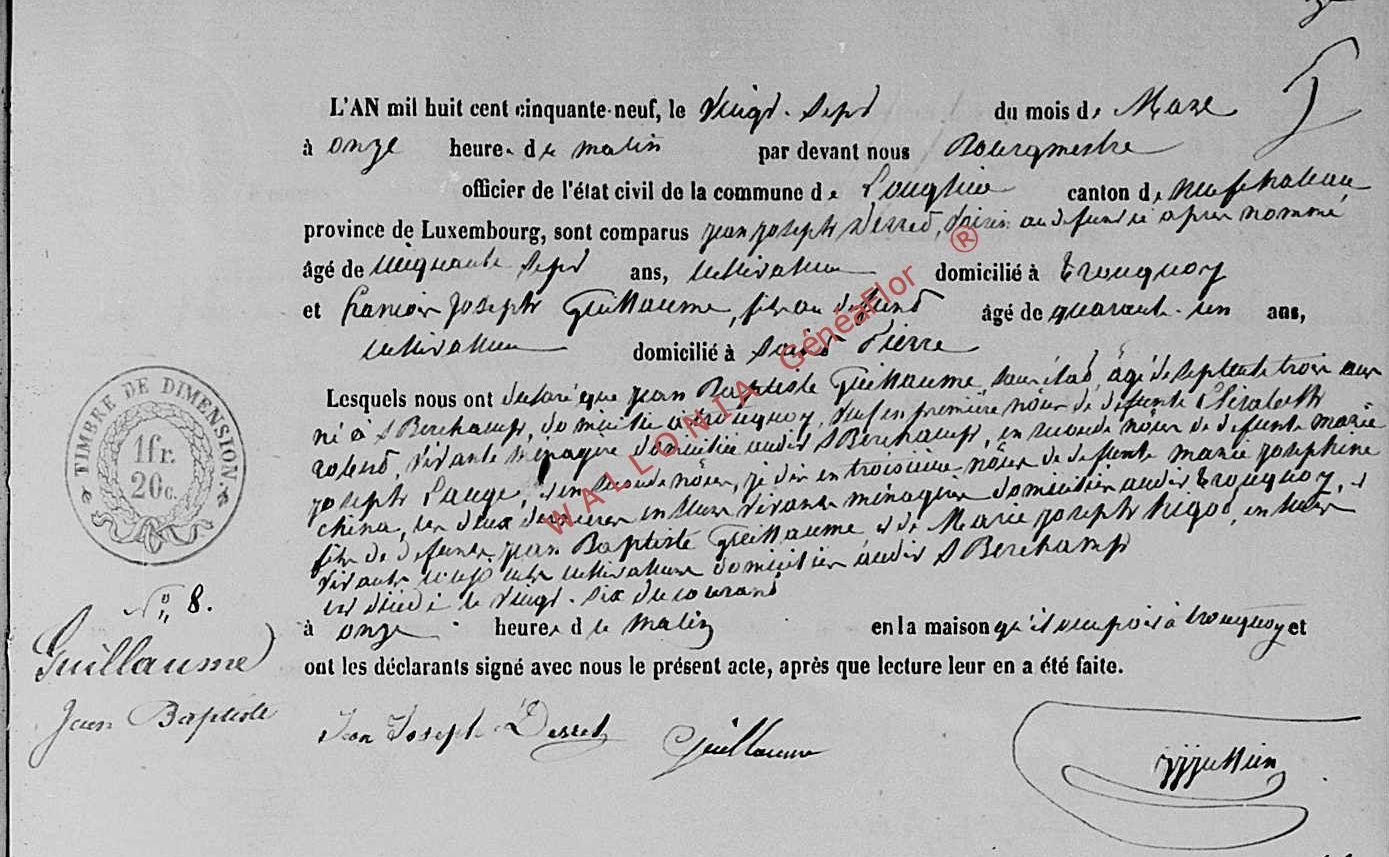 L'AN mil huit cent cinquante-neuf, le vingt-sept du mois de Mars
à onze heures du matin par devant nous Bourgmestre
officier de l'état civil de la commune de Longlier canton de neufchateau
province de Luxembourg, sont comparus jean joseph Derred, voisin au défunt ci après nommé
âgé de cinquante sept ans, cultivateur domicilié à Tronquoy
et françois joseph Guillaume, fils au défunt âgé de quarante-un ans,
cultivateur domicilié à Saint Pierre
Lesquels nous ont déclaré que jean Baptiste Guillaume, sans état, âgé de septante trois ans
né à St Berchamps, domicilié à Tronquoy, veuf en première nôces de défunte Elisabeth
vivante ménagère domiciliée audit St Berchamps, en seconde nôces de défunte marie
joseph Lange, et en seconde nôces, je dis en troisième nôces de défunte marie josephine
china, les deux dernières en leur vivant ménagères domiciliées audit Tronquoy, et
fils de défunts jean Baptiste Guillaume, et de Marie joseph en leur
vivants cultivateurs domiciliés audit St Berchamps
est décédé le vingt-six du courant
à onze heures du matin en la maison qu'il occupoit à tronquoy et
ont les déclarants signé avec nous le présent acte, après que lecture leur en a été faite.
Jean Joseph Derret Guillaume
TIMBRE DE DIMENSION.
1 fr.
20 c.
No 8.
Guillaume
Jean Baptiste
WALLONIA GénéaFlor ®